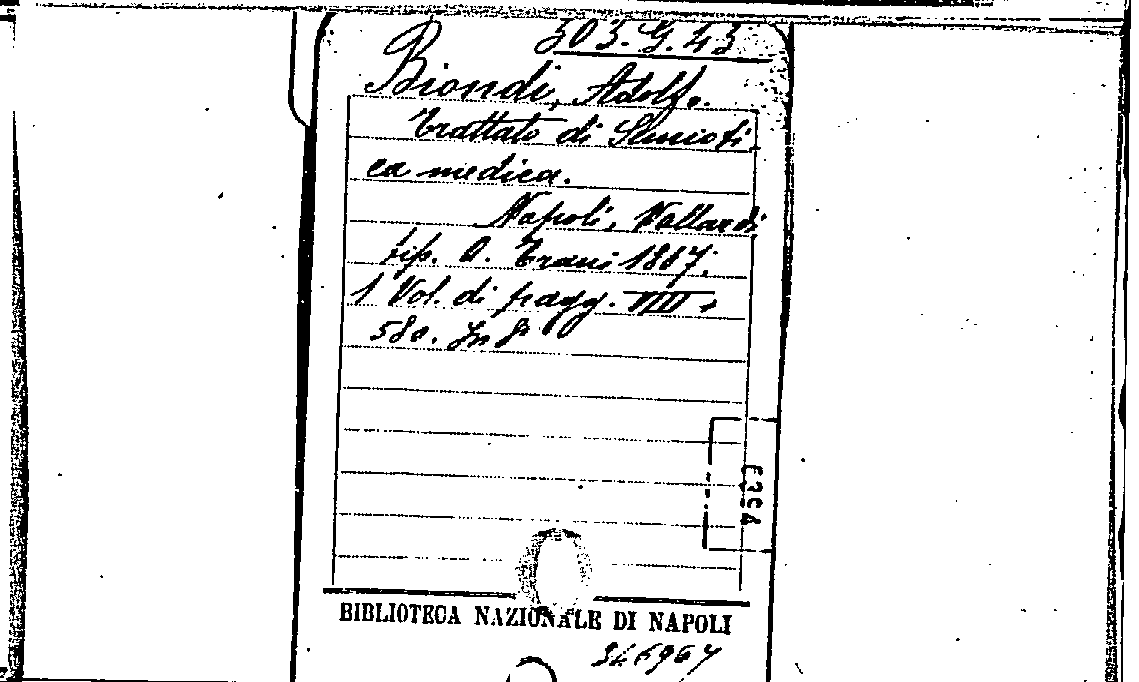 303. G. 43
Biondi, Adolfo.
Trattato di Semioti
ca medica.
Napoli, Vallardi
tip. A. Trani 1887.
1 Vol. di pagg. VIII +
580. In 8°
6364
BIBLIOTECA NAZIONALE DI NAPOLI
346967